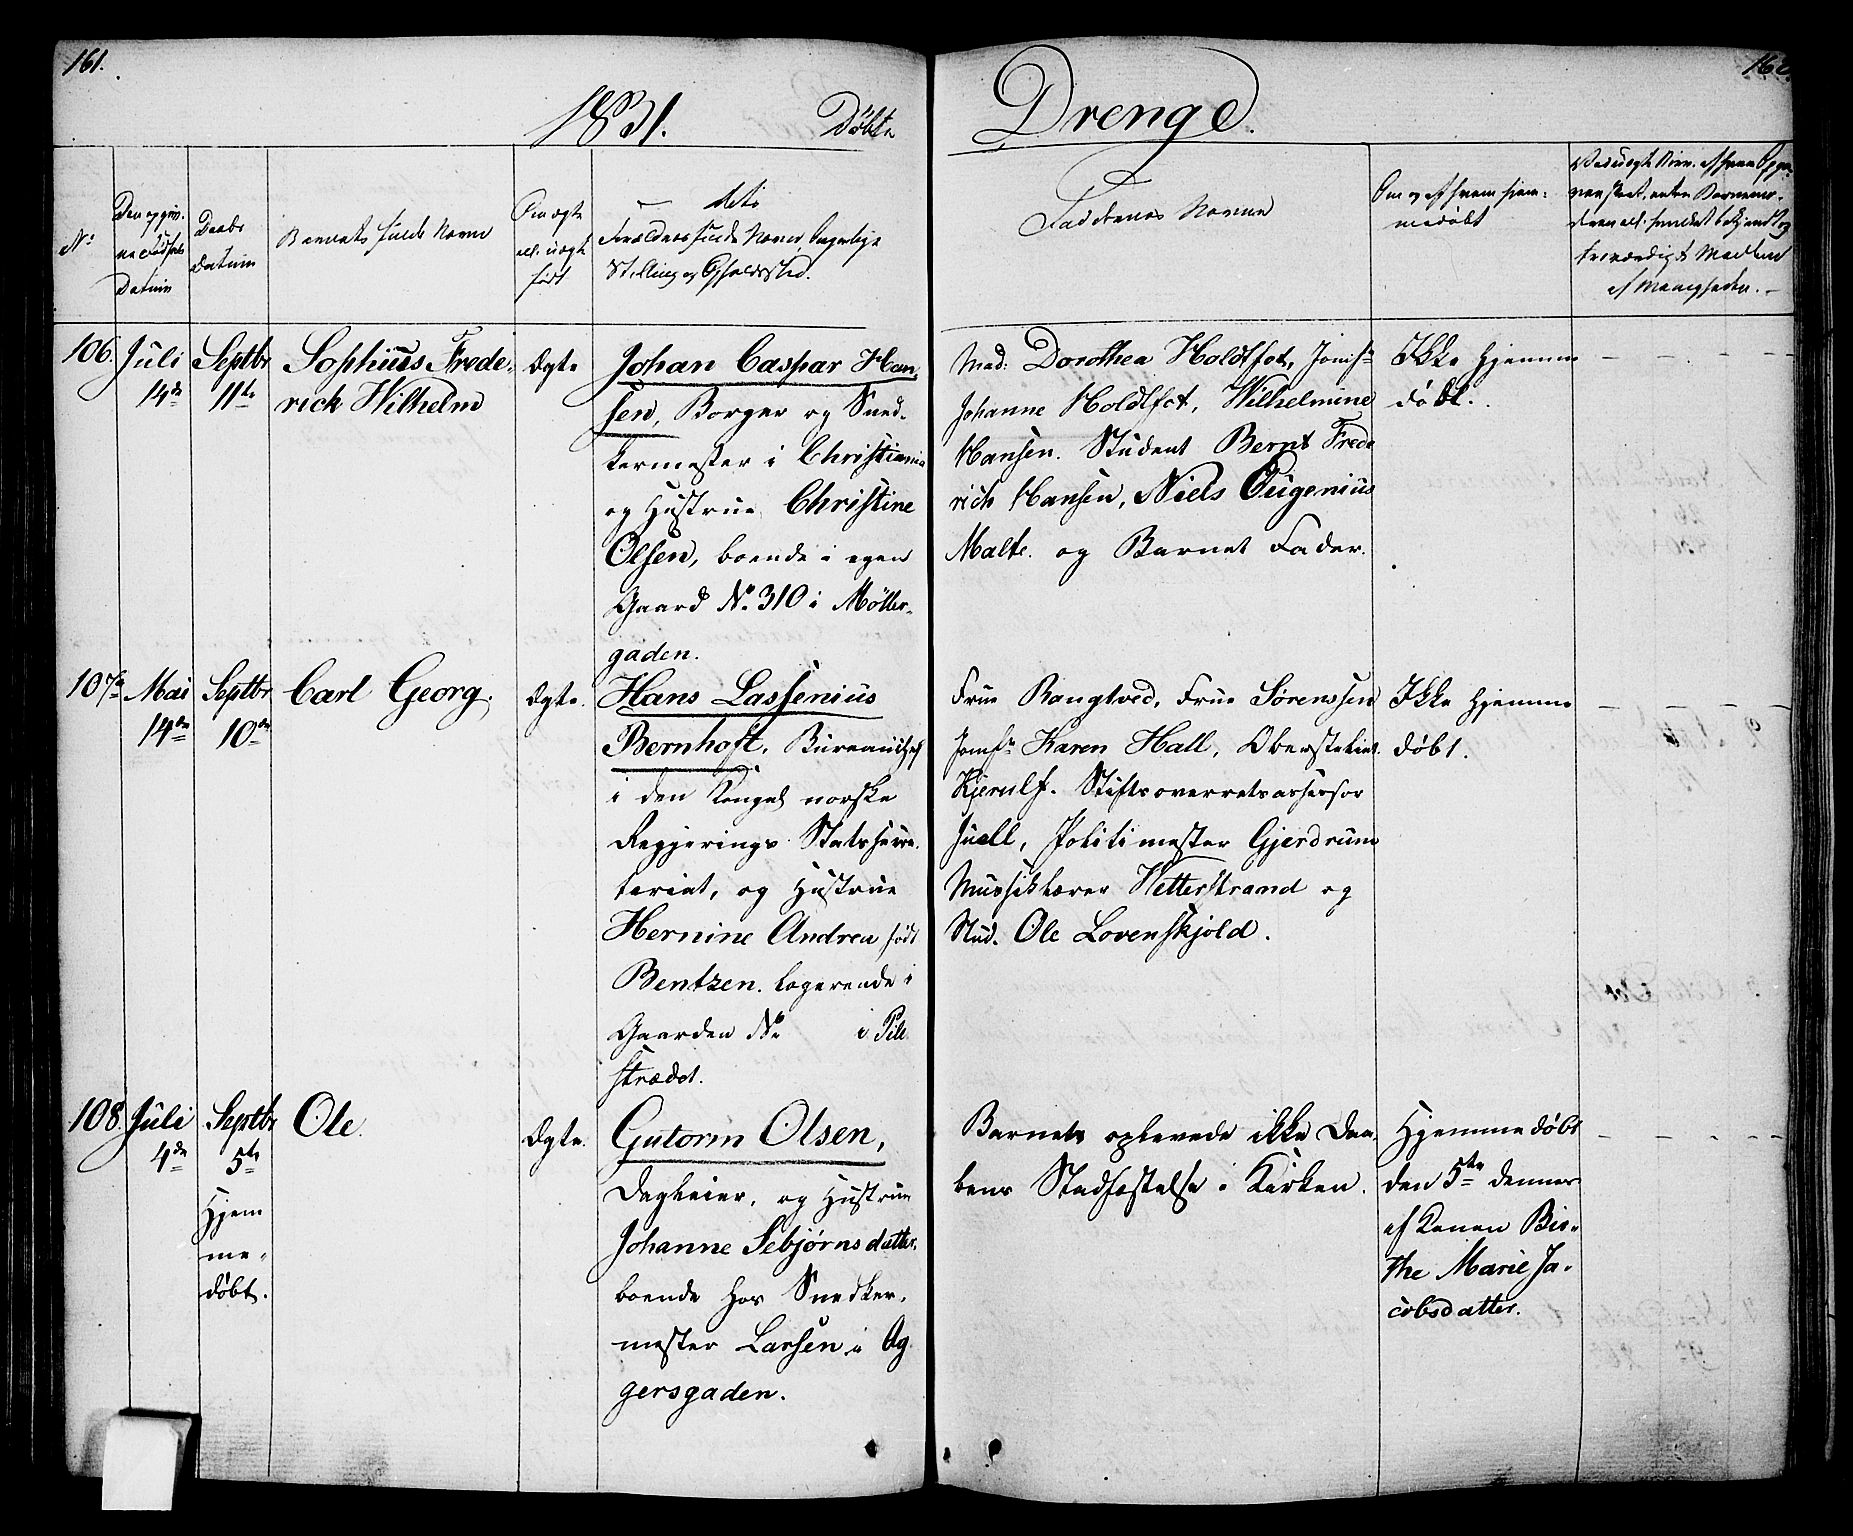 161.
162.
1831. Døbte Drenge.
No
Den opgiv-
ne Fødsels
Datum
Daabs
Datum
Barnets fulde Navne
Om ægte
ell. uægte
født
Forældres fulde Navne, borgerlige
Stilling og Opholdssted.
Faddernes Navne
Om og af hvem hjem-
medøbt
106. Juli
14de
Septbr
11te
Sophius Frede-
rick Wilhelm
Ægte
Johan Caspar Han-
sen, Borger og Sned-
kermester i Christiania
og Hustrue Christine
Olsen, boende i egen
Gaard No. 310 i Møller-
gaden.
Mad: Dorothea Holdtfot, Jomfr
Johanne Holdtfot, Wilhelmine
Hansen. Student Bernt Frede
rich Hansen, Niels Eugenius
Malte. og Barnet Fader.
Ikke Hjemme
døbt.
107de Mai
14de
Septbr
10de
Carl Georg.
Ægte.
Hans Lassenius
Bernhoft, Bureauchef
i den Kongel norske
Regjerings Statssecre-
tariat, og Hustrue
Hernine Andrea født
Bentzen. logerende i
Gaarden No i Pile
strædet.
Frue Rangtved, Frue Sørenssen
Jomfr Karen Hall, Oberstelieut
Kjerulf. Stiftsoverretsassessor
Juell, Politimester Gjerdrum
Mussiklærer Vetterstrand og
Stud. Ole Lovenskjold.
Ikke Hjemme
døbt.
108. Juli
4de
Septbr
5te
Hjem
me-
døbt.
Ole.
Ægte.
Gutorm Olsen,
Dagleier, og Hustrue
Johanne Sebjørnsdatter,
boende hos Snedker-
mester Larsen i Ag
gersgaden.
Barnet oplevede ikke Daa-
bens Stadfæstelse i Kirken.
Hjemmedøbt
den 5te dennes
af Konen Bir-
the Marie Ja-
cobsdatter.